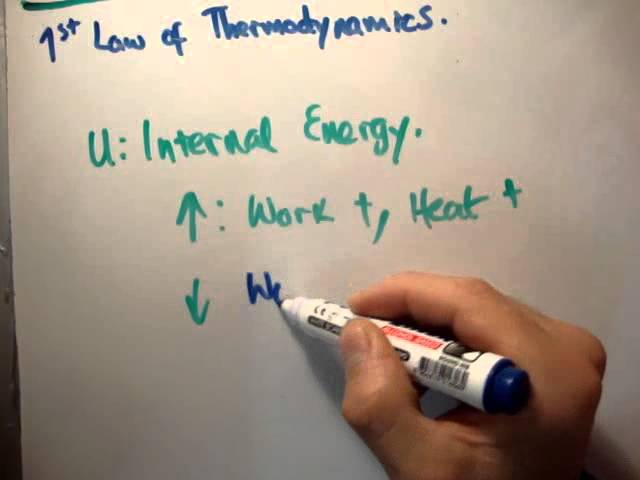 1st Law of Thermodynamics.
U: Internal Energy.
↑: Work +, Heat +
↓ Wo